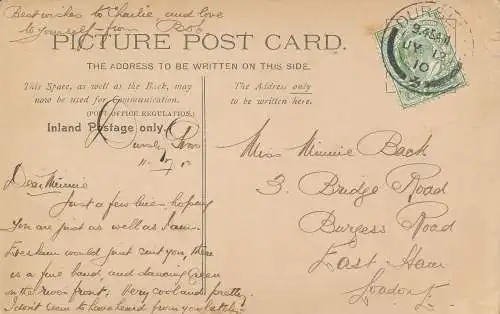 Best wishes to Charlie and love
to yourself from Bob
PICTURE POST CARD.
THE ADDRESS TO BE WRITTEN ON THIS SIDE.
This Space, as well as the Back, may
now be used for Communication.
(POST OFFICE REGULATION.)
Inland Postage only.
The Address only
to be written here.
11.7.10
Dear Minnie
Just a few lines hoping
you are just as well as I am.
Evesham would just suit you, there
is a fine band, and dancing Green
on the river front; Very cool and pretty.
I don't seem to have heard from you lately.
Miss Minnie Back
3. Bridge Road
Burgess Road
East Ham
London E.
9.45AM
JY 12
10